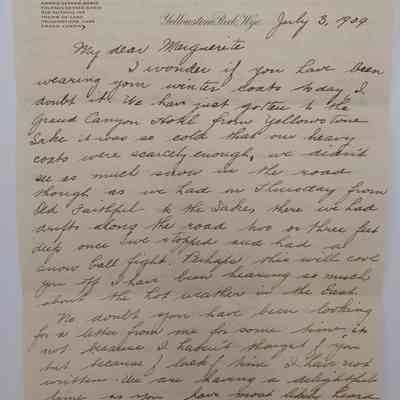 Yellowstone Park, Wyo. July 3, 1909
My dear Marguerite
I wonder if you have been
wearing your winter coats today, I
doubt it. We have just gotten to the
Grand Canyon Hotel from Yellowstone
Lake it was so cold that our heavy
coats were scarcely enough, we didn't
see as much snow in the road
though as we had on Thursday from
Old Faithful to the Lake, there we had
drifts along the road two or three feet
deep once we stopped and had a
snow ball fight. Perhaps this will cool
you off I have been hearing so much
about the hot weather in the East.
No doubt you have been looking
for a letter from me for some time, it's
not because I haven't thought of you
but because of lack of time I have not
written. We are having a delightful
time as you have most likely heard